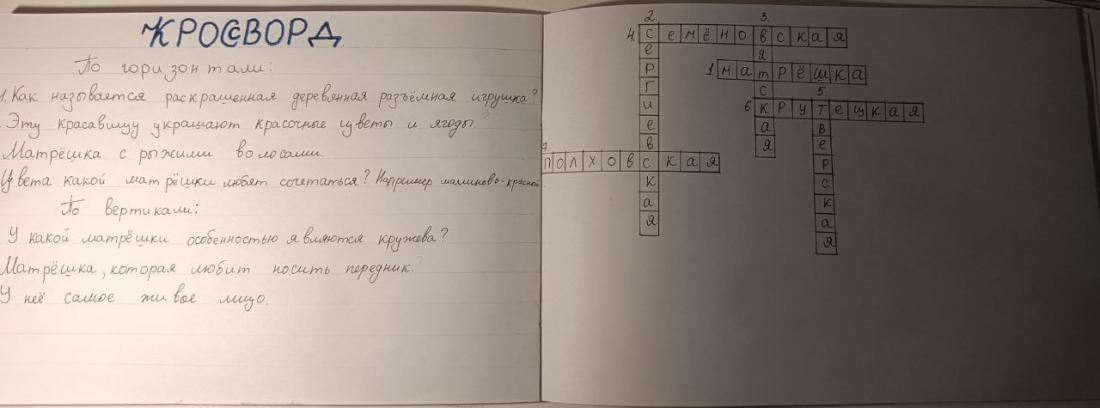 КРОССВОРД
По горизонтали:
1. Как называется раскрашенная деревянная разъёмная игрушка?
Эту красавицу украшают красочные цветы и ягоды.
Матрёшка с рыжими волосами.
Цвета какой матрёшки любят сочетаться? Например малиново-красный
По вертикали:
У какой матрёшки особенностью являются кружева?
Матрёшка, которая любит носить передник.
У неё самое живое лицо.
2. 3.
4. семёновская
1 матрёшка
5.
6. крутецкая
7 полховская
сергиевская
вятская
тверская